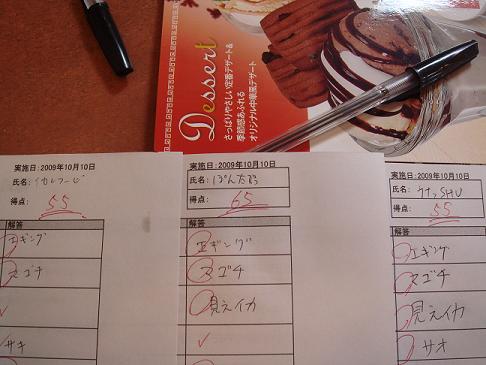 Dessert
さっぱりやさしい定番デザート&
季節感あふれる
オリジナル中華風デザート
実施日:2009年10月10日
氏名:
得点: 55
解答
エギング
スゴチ
サキ
実施日:2009年10月10日
氏名: ぽん太郎
得点: 65
解答
エギング
スゴチ
見えイカ
実施日:2009年10月10日
氏名:
得点: 55
解答
エギング
スゴチ
見えイカ
サオ